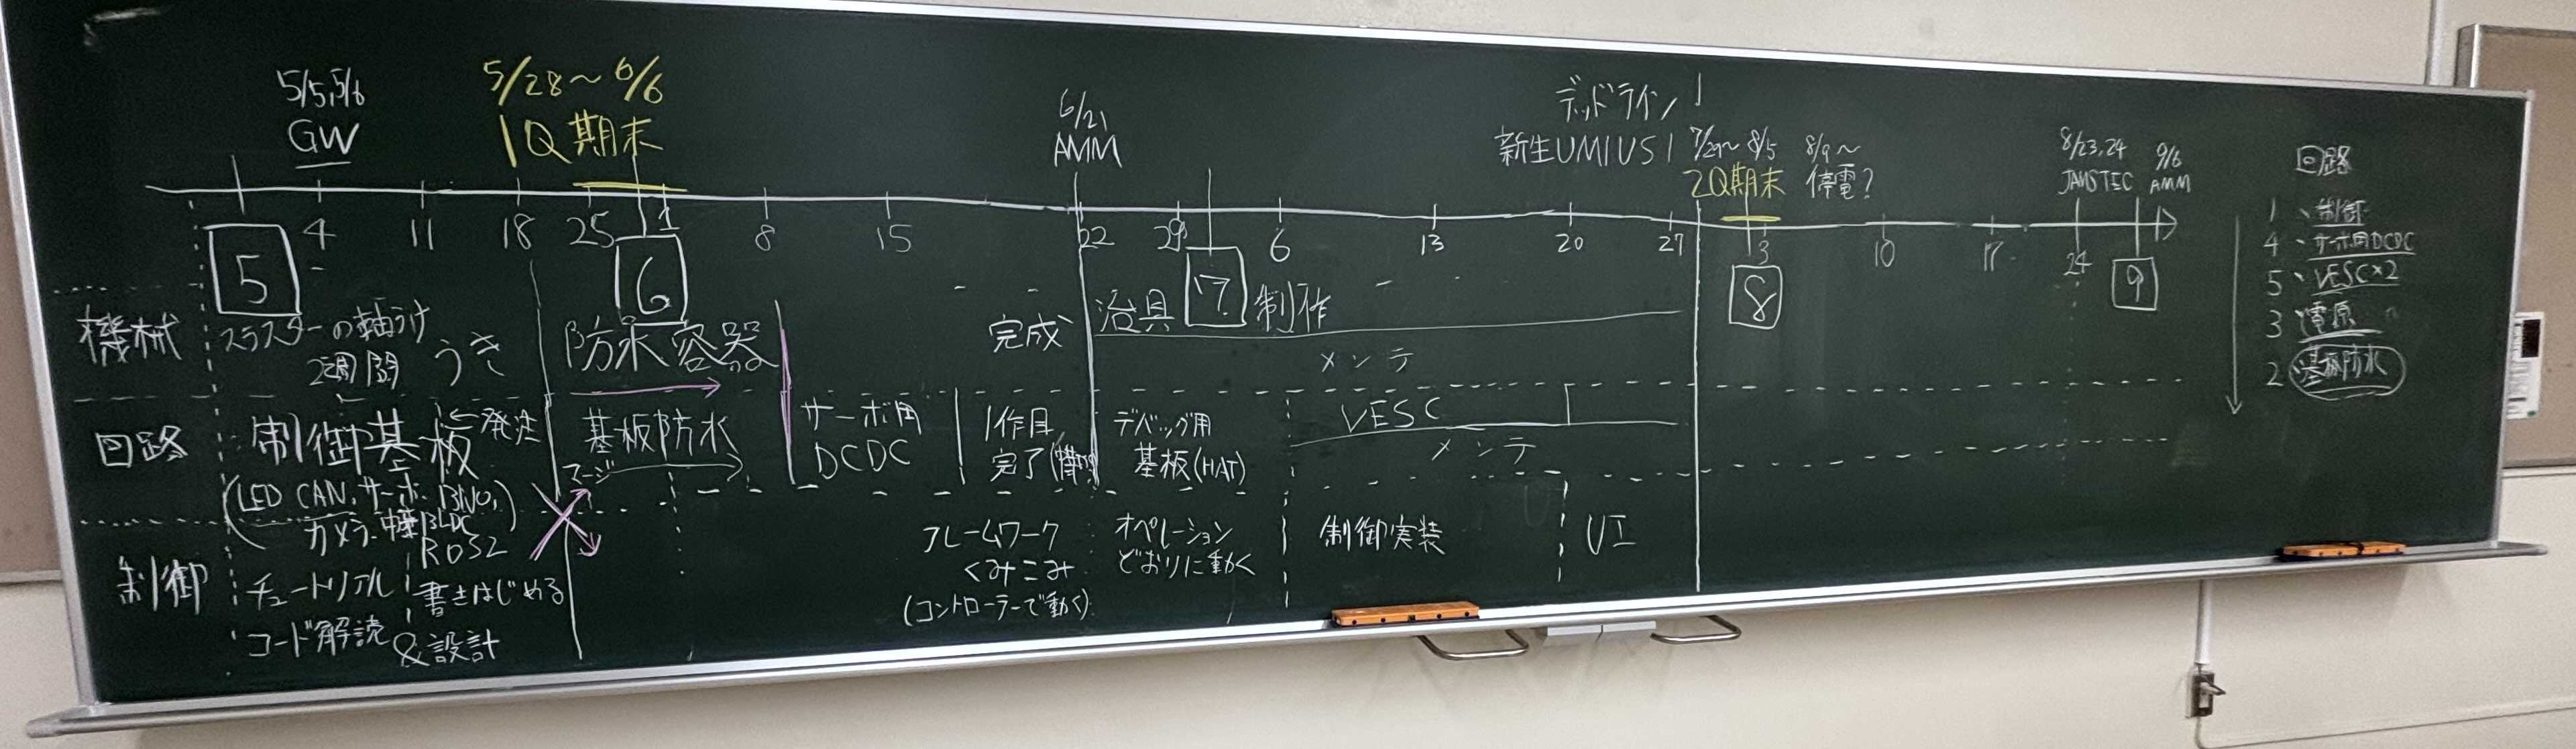 5/5,5/6
GW
5/28～6/6
1Q期末
6/21
AMM
デッドライン
新生UMIUSI
7/29～8/5
2Q期末
8/9～
停電?
8/23,24
JAMSTEC
9/6
AMM
5
4
11
18
25
6
1
8
15
22
29
7
6
13
20
27
8
3
10
17
24
9
機械
スラスターの軸うけ
2週間
うき
防水容器
完成
治具
制作
メンテ
回路
制御基板
←発注
(LED CAN,サーボ,BNO,
カメラ,
BLDC
基板防水
サーボ用
DCDC
1作目
完了
デバッグ用
基板(HAT)
VESC
メンテ
制御
チュートリアル
コード解読
ROS2
書きはじめる
&設計
フレームワーク
くみこみ
(コントローラーで動く)
オペレーション
どおりに動く
制御実装
UI
回路
1、制御
4、サーボ用DCDC
5、VESC×2
3、電源
2 基板防水